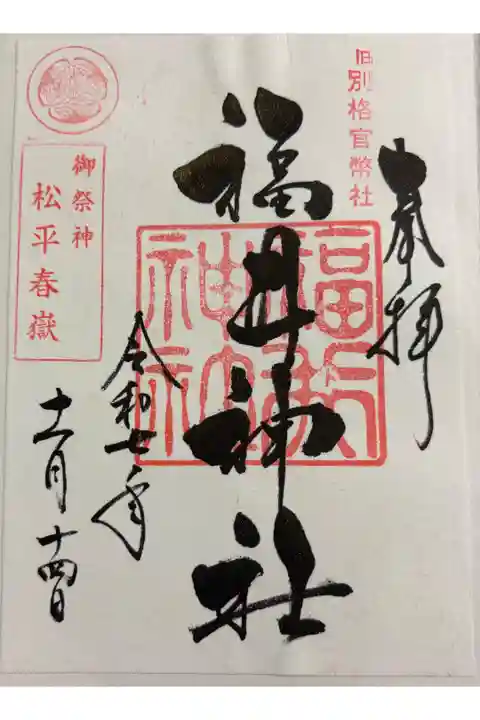 奉拝
旧別格官幣社
福井神社
福井神社
令和七年
十一月十四日
御祭神
松平春嶽